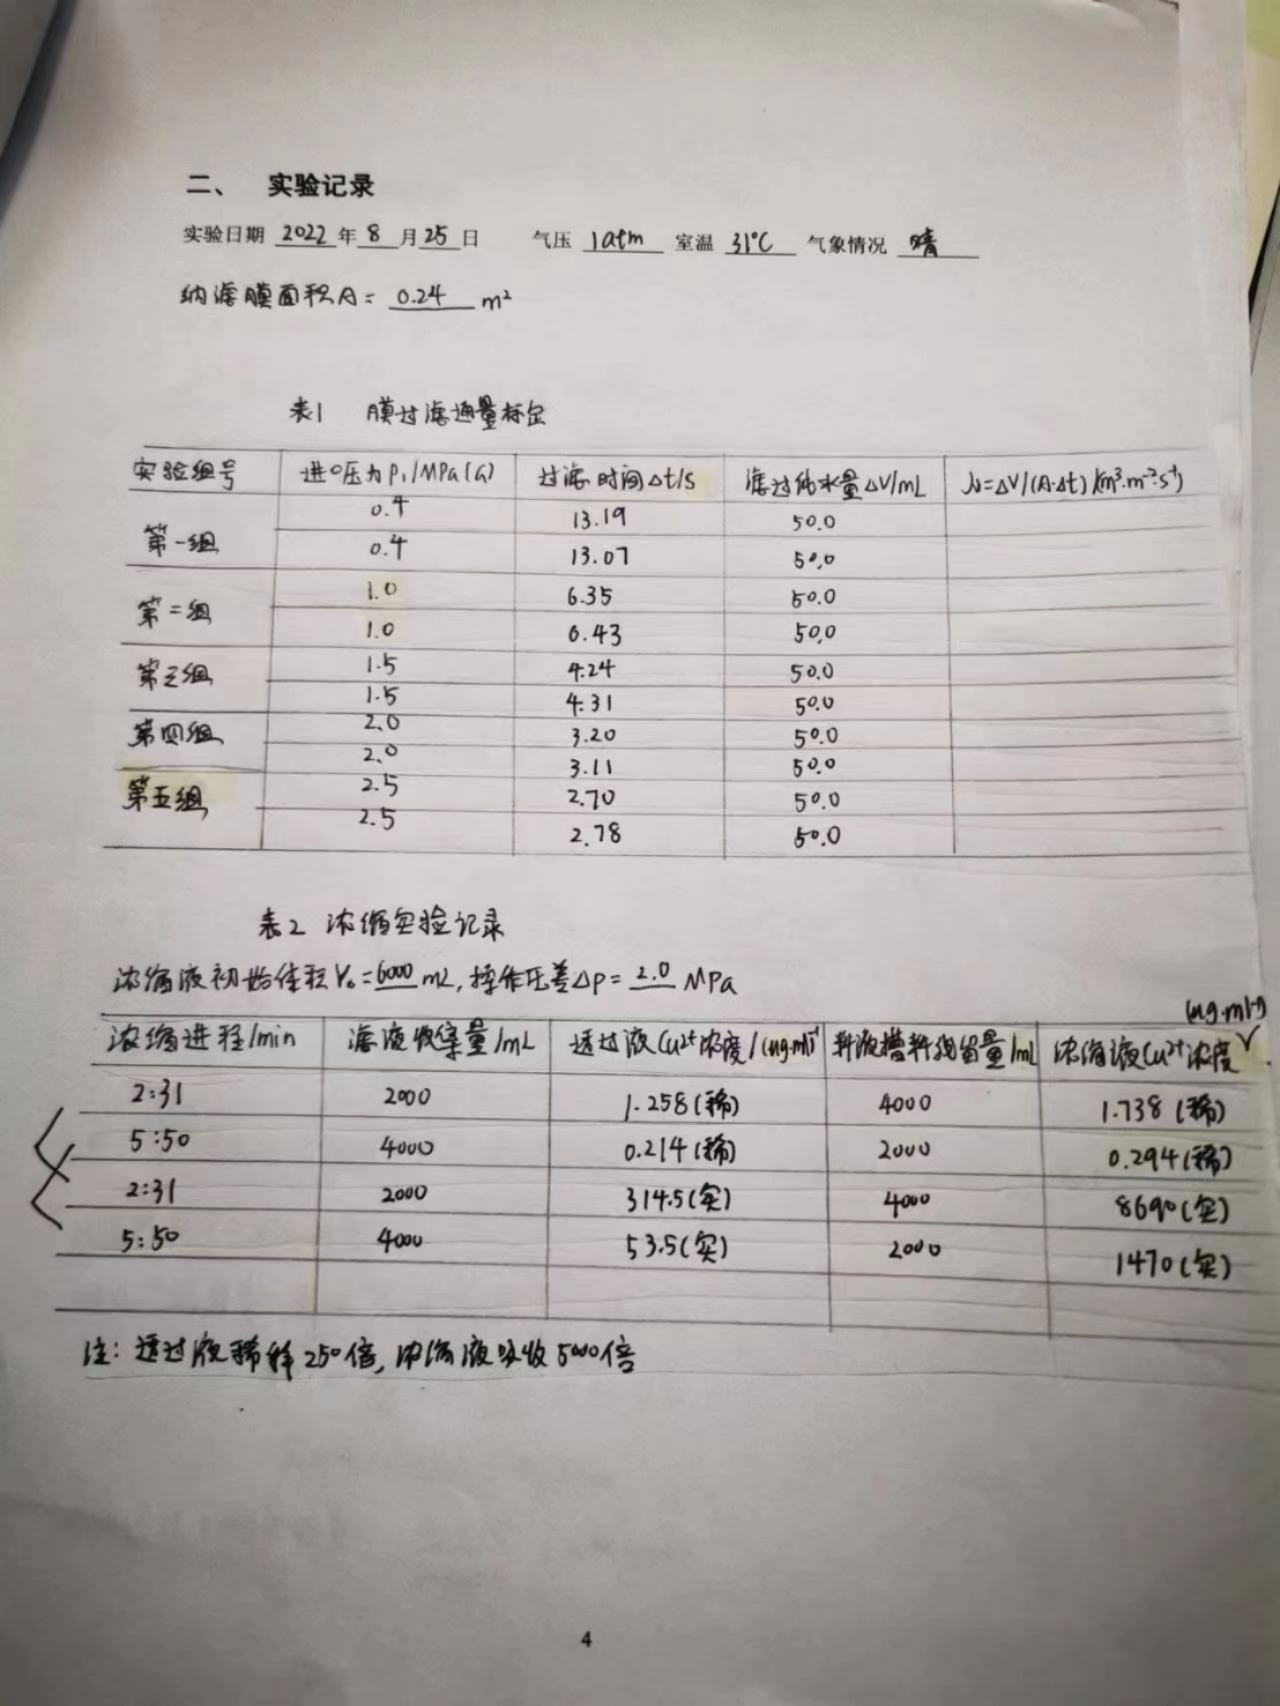 二、 实验记录
实验日期 2022 年 8 月 25 日 气压 1atm 室温 31℃ 气象情况 晴
纳滤膜面积A= 0.24 m²
表1 膜过滤通量标定
实验组号 进口压力P₁/MPa(G) 过滤时间Δt/s 滤过纯水量ΔV/mL J₀=ΔV/(A·Δt)/(m³·m⁻²·s⁻¹)
第一组 0.4 13.19 50.0
0.4 13.07 50.0
第二组 1.0 6.35 50.0
1.0 6.43 50.0
第三组 1.5 4.24 50.0
1.5 4.31 50.0
第四组 2.0 3.20 50.0
2.0 3.11 50.0
第五组 2.5 2.70 50.0
2.5 2.78 50.0
表2 浓缩实验记录
浓缩液初始体积V₀=6000 mL,操作压差ΔP= 2.0 MPa
浓缩进程/min 滤液收集量/mL 透过液Cu²⁺浓度/(ug·ml)⁻¹ 料液槽料残留量/mL 浓缩液Cu²⁺浓度 (ug·ml⁻¹)
2:31 2000 1.258(稀) 4000 1.738(稀)
5:50 4000 0.214(稀) 2000 0.294(稀)
2:31 2000 314.5(实) 4000 8690(实)
5:50 4000 53.5(实) 2000 1470(实)
注：透过液稀释250倍,浓缩液吸收5000倍
4